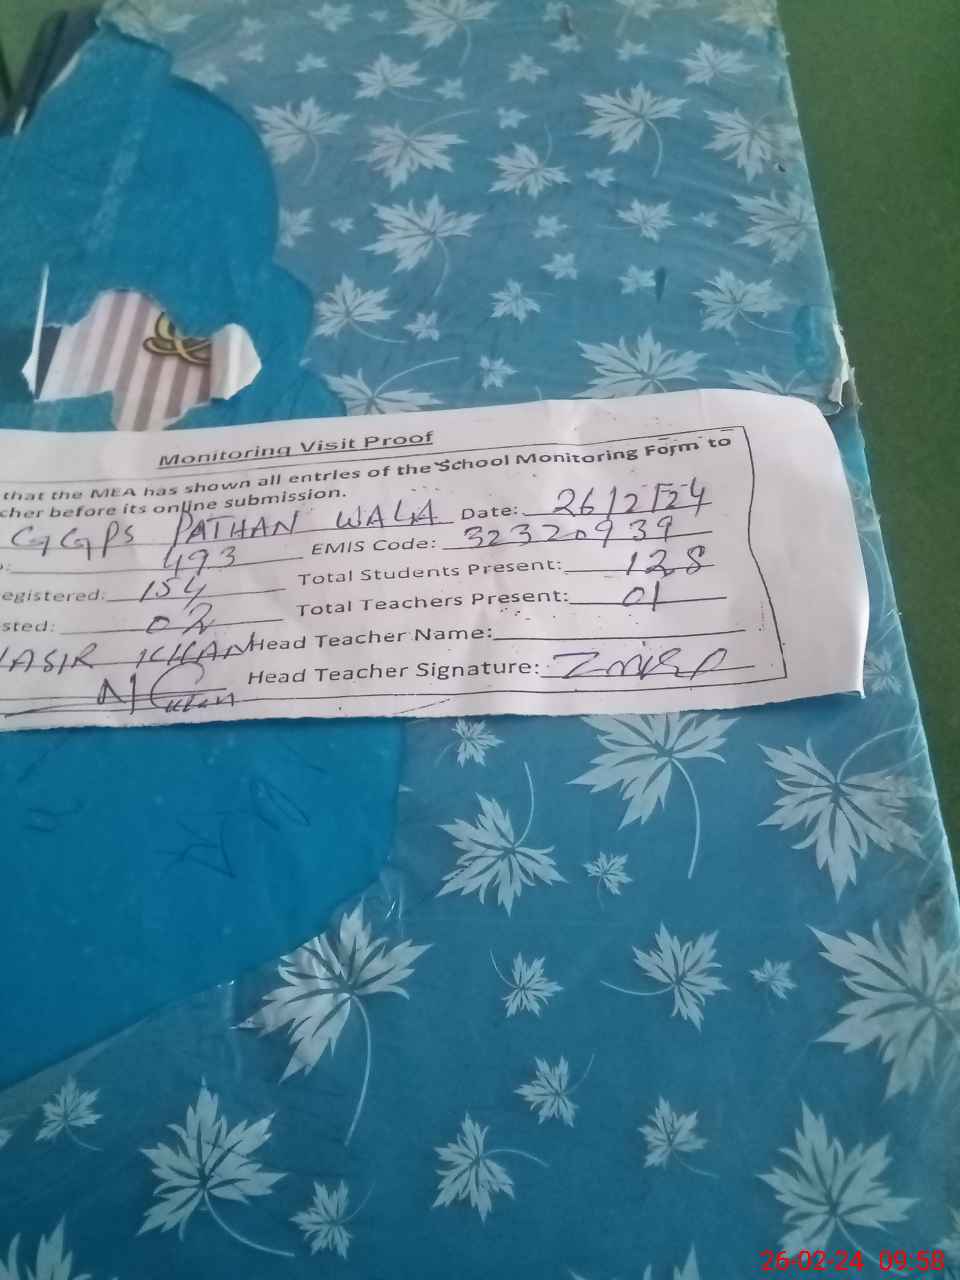 Monitoring Visit Proof
that the MEA has shown all entries of the School Monitoring Form to
cher before its online submission.
GGPS PATHAN WALA Date: 26/2/24
493 EMIS Code: 32320939
egistered: 154 Total Students Present: 128
sted: 02 Total Teachers Present: 01
ASIR KHAN Head Teacher Name:
Khan Head Teacher Signature:
26-02-24 09:58